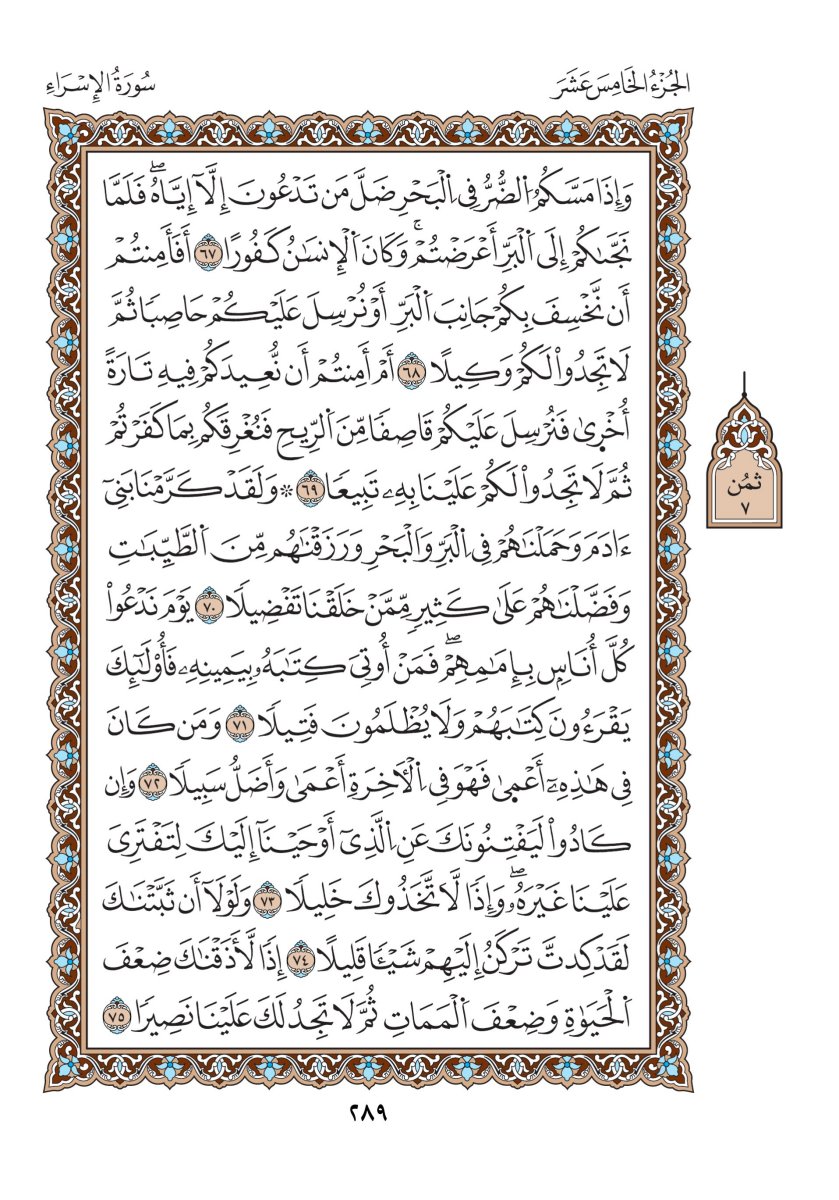 الجُزْءُ الخَامِسَ عَشَرَ
سُورَةُ الإِسْرَاءِ
وَإِذَا مَسَّكُمُ اُ۬لضُّرُّ فِي اِ۬لْبَحْرِ ضَلَّ مَن تَدْعُونَ إِلَّآ إِيَّاهُۖ فَلَمَّا
نَجَّىٰكُمْ إِلَى اَ۬لْبَرِّ أَعْرَضْتُمْۚ وَكَانَ اَ۬لْإِنسَٰنُ كَفُورًا ٦٧ أَفَأَمِنتُمْ
أَن نَّخْسِفَ بِكُمْ جَانِبَ اَ۬لْبَرِّ أَوْ نُرْسِلَ عَلَيْكُمْ حَاصِبٗا ثُمَّ
لَا تَجِدُواْ لَكُمْ وَكِيلًا ٦٨ أَمْ أَمِنتُمْ أَن نُّعِيدَكُمْ فِيهِ تَارَةً
أُخْر۪ىٰ فَنُرْسِلَ عَلَيْكُمْ قَاصِفٗا مِّنَ اَ۬لرِّيحِ فَنُغْرِقَكُم بِمَا كَفَرْتُمْ
ثُمَّ لَا تَجِدُواْ لَكُمْ عَلَيْنَا بِهِۦ تَبِيعٗا ٦٩ ۞ وَلَقَدْ كَرَّمْنَا بَنِيٓ
ءَادَمَ وَحَمَلْنَٰهُمْ فِي اِ۬لْبَرِّ وَالْبَحْرِ وَرَزَقْنَٰهُم مِّنَ اَ۬لطَّيِّبَٰتِ
وَفَضَّلْنَٰهُمْ عَلَىٰ كَثِيرٖ مِّمَّنْ خَلَقْنَا تَفْضِيلٗا ٧٠ يَوْمَ نَدْعُواْ
كُلَّ أُنَاسِۭ بِإِمَٰمِهِمْۖ فَمَنْ أُوتِيَ كِتَٰبَهُۥ بِيَمِينِهِۦ فَأُوْلَٰٓئِكَ
يَقْرَءُونَ كِتَٰبَهُمْ وَلَا يُظْلَمُونَ فَتِيلٗا ٧١ وَمَن كَانَ
فِي هَٰذِهِۦٓ أَعْم۪ىٰ فَهْوَ فِي اِ۬لْأٓخِرَةِ أَعْمَىٰ وَأَضَلُّ سَبِيلٗا ٧٢ وَإِن
كَادُواْ لَيَفْتِنُونَكَ عَنِ اِ۬لَّذِيٓ أَوْحَيْنَآ إِلَيْكَ لِتَفْتَرِيَ
عَلَيْنَا غَيْرَهُۥۖ وَإِذٗا لَّاتَّخَذُوكَ خَلِيلٗا ٧٣ وَلَوْلَآ أَن ثَبَّتْنَٰكَ
لَقَدْ كِدتَّ تَرْكَنُ إِلَيْهِمْ شَيْـٔٗا قَلِيلًا ٧٤ إِذٗا لَّأَذَقْنَٰكَ ضِعْفَ
اَ۬لْحَيَوٰةِ وَضِعْفَ اَ۬لْمَمَاتِ ثُمَّ لَا تَجِدُ لَكَ عَلَيْنَا نَصِيرٗا ٧٥
ثُمُن
٧
٢٨٩